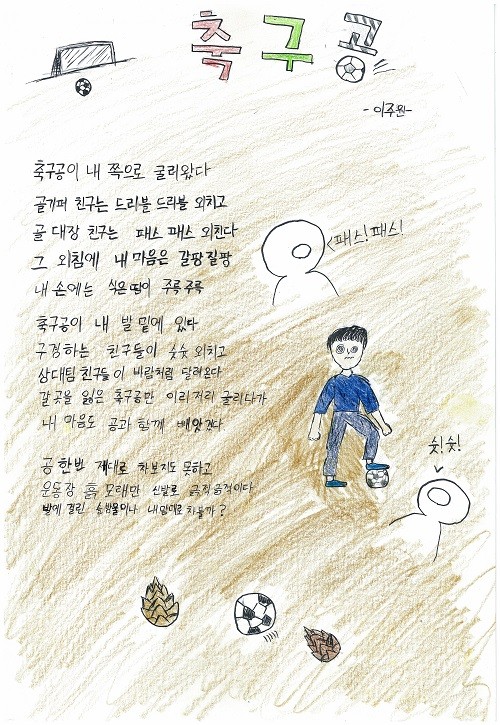 축구공
-이주원-
축구공이 내 쪽으로 굴러왔다
골키퍼 친구는 드리블 드리블 외치고
골 대장 친구는 패스 패스 외친다
패스! 패스!
그 외침에 내 마음은 갈팡질팡
내 손에는 식은 땀이 주룩 주룩
축구공이 내 발 밑에 있다
구경하는 친구들이 슛슛 외치고
상대팀 친구들이 바람처럼 달려온다
갈곳을 잃은 축구공만 이리저리 굴리다가
내 마음도 공과 함께 빼앗긴다
슛! 슛!
공 한번 제대로 차보지도 못하고
운동장 흙 모래만 신발로 긁적 긁적이다
발에 걸린 솔방울이나 내맘대로 차볼까?